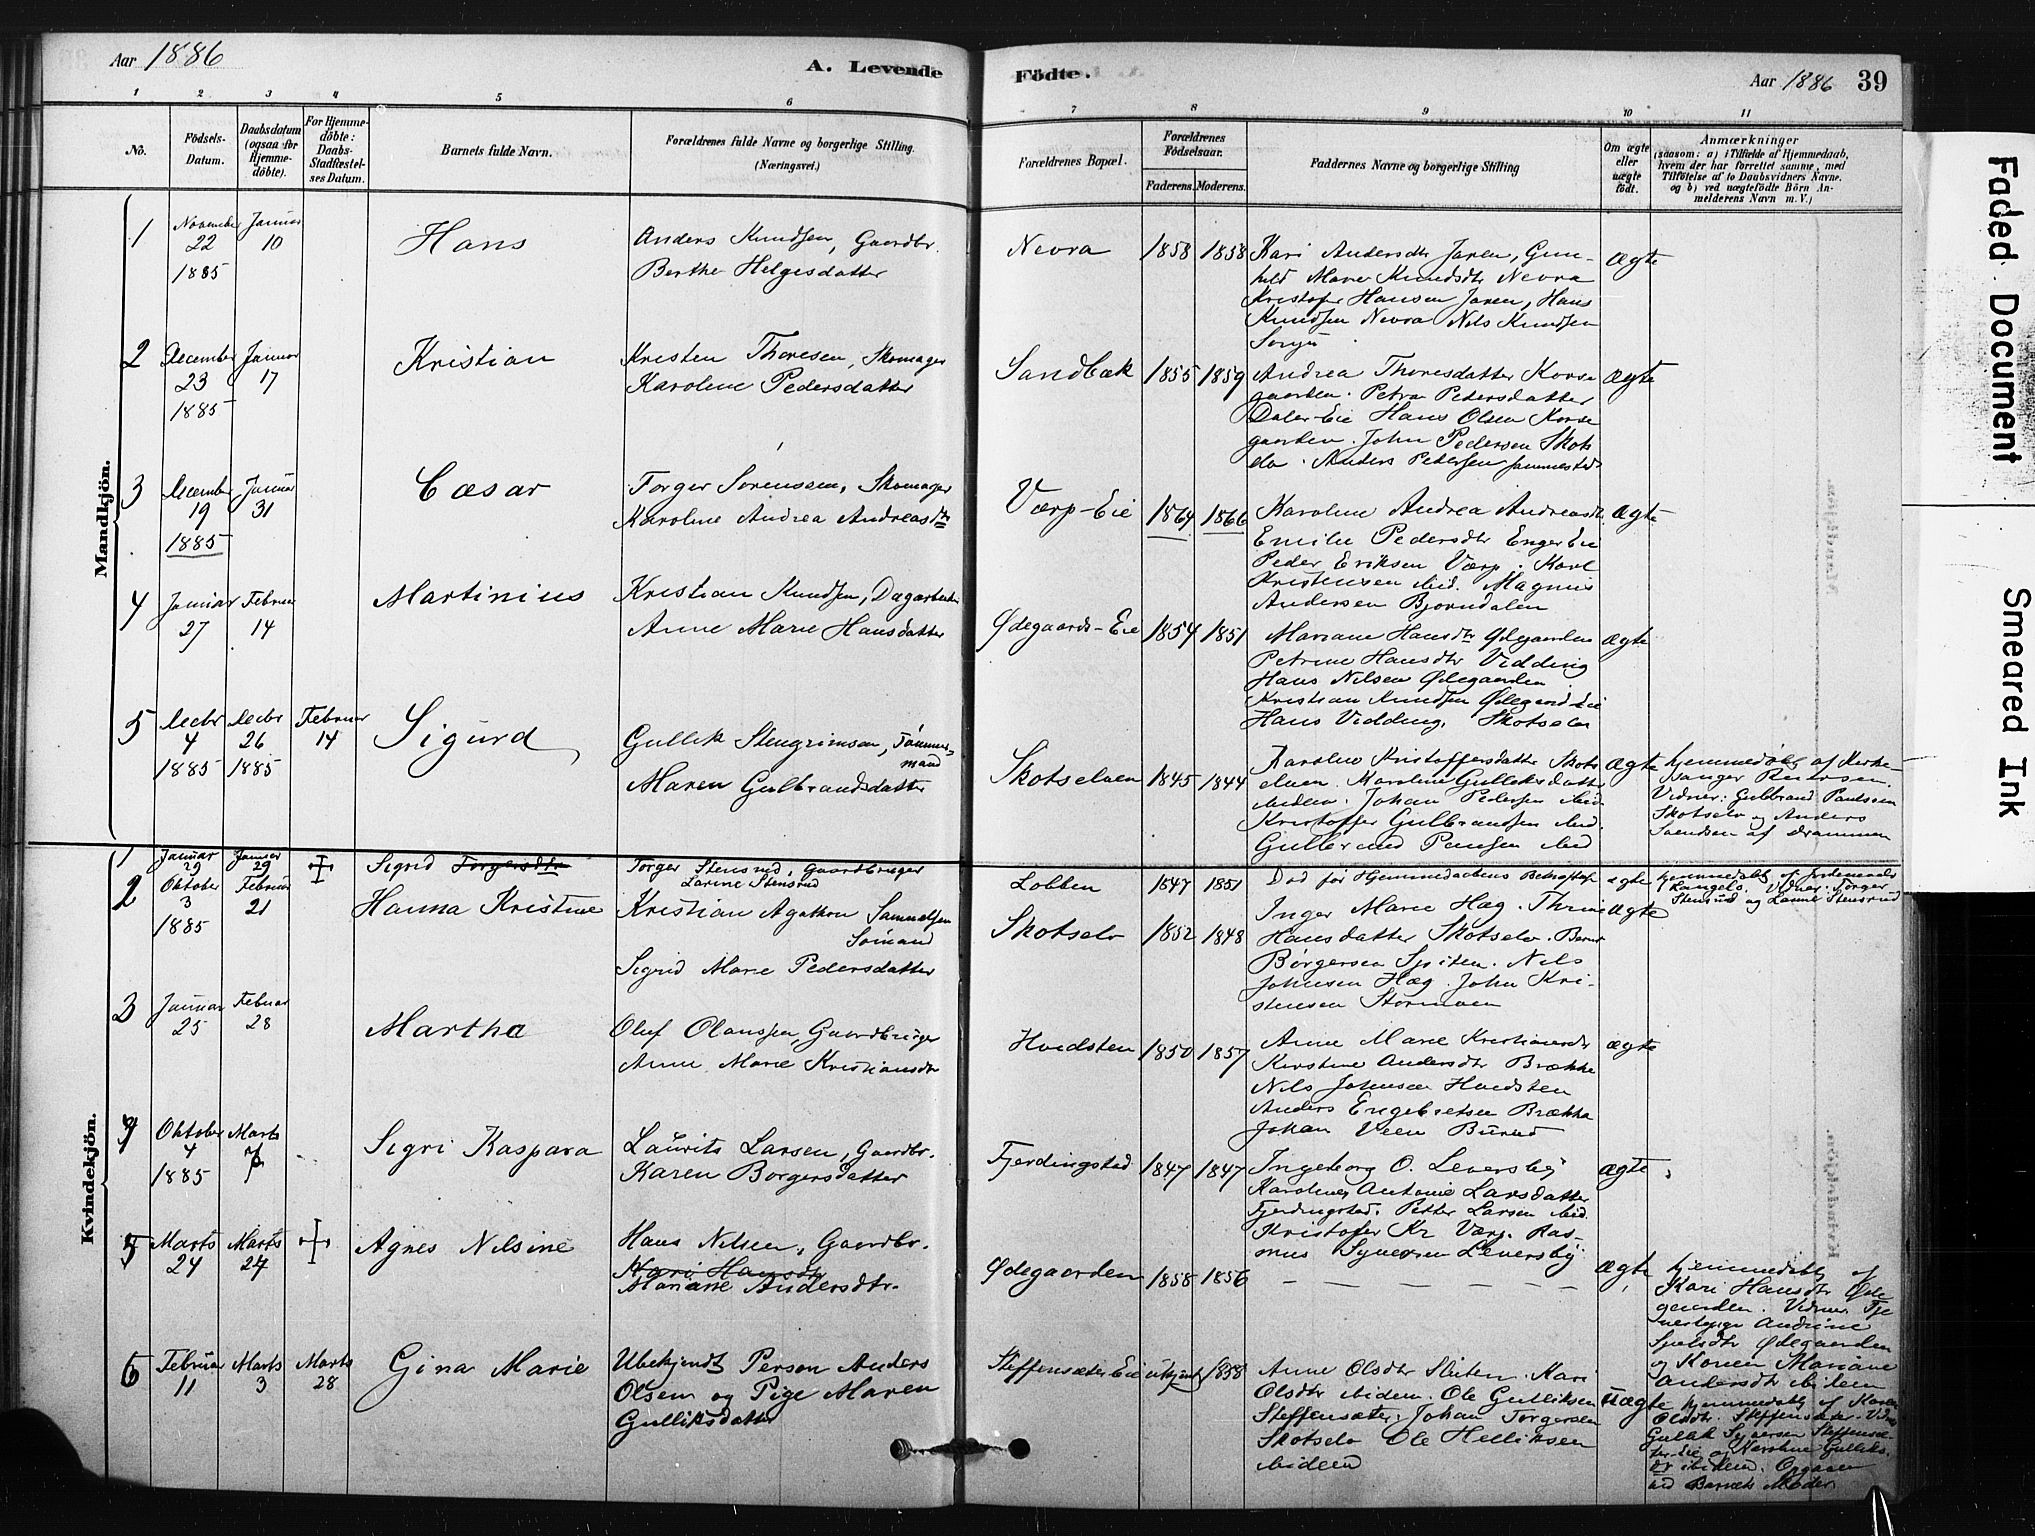 Aar 1886
A. Levende
Födte.
Aar 1886
39
1 2 3 4 5 6 7 8 9 10 11
No.
Födsels-
Datum.
Daabsdatum
(ogsaa for
Hjemme-
döbte).
For Hjemme-
döbte:
Daabs-
Stadfæstel-
ses Datum.
Barnets fulde Navn.
Forældrenes fulde Navne og borgerlige Stilling.
(Næringsvei.)
Forældrenes Bopæl.
Forældrenes
Födselsaar.
Faderens. Moderens.
Faddernes Navne og borgerlige Stilling
Om ægte
eller
uægte
født.
Anmærkninger
(saasom: a) i Tilfælde af Hjemmedaab,
hvem der har forrettet samme, med
Tilföielse af to Daabsvidners Navne.
og b) ved uægtefödte Börn An-
melderens Navn m. V.)
Mandkjön.
1
November
22
1885
Januar
10
Hans
Anders Knudsen, Gaardbr.
Berthe Helgesdatter
Nevra
1858 1858
Kari Andersdtr Jaren, Gun-
hild Marie Knudsdtr Nevra
Kristofer Hansen Jaren, Hans
Knudsen Nevra Nils Knudsen
Ægte
2
December
23
1885
Januar
17
Kristian
Kristen Thoresen, Skomager
Karoline Pedersdatter
Sandbæk
1855 1859
Andrea Thoresdatter Korse
gaarden. Petra Pedersdatter
Daler Eie Hans Olsen Korse
gaarden. John Pedersen Skots
elv. Anders Petersen
Ægte
3
December
19
1885
Januar
31
Cæsar
Torger Sørensen, Skomager
Karoline Andrea Andreasdtr
Værp-Eie
1864 1866
Karoline Andrea Andreasdtr
Emilie Pedersdtr Enger Eie
Peder Eriksen Værp. Karl
Kristensen ibid. Magnus
Andersen Bjorndalen
Ægte
4
Januar
27
Februar
14
Martinius
Kristian Knudsen, Dagarbeider
Anne Marie Hansdatter
Ødegaards-Eie
1854 1851
Mariane Hansdtr Ødegaarden
Petrine Hansdtr Vidding
Hans Nilsen Ødegaarden
Kristian Knudsen Ødegaard Eie
Hans Vidding, Skotselv
Ægte
5
Decbr
4
1885
Decbr
26
1885
Februar
14
Sigurd
Gullik Stengrimsen, Tømmer-
mand
Maren Gulbrandsdatter
Skotselven
1845 1844
Karoline Kristoffersdatter Skots
elven. Karoline Gulliksdatter
ibidem. Johan Pedersen ibid.
Kristoffer Gulbrandsen ibid.
Gulbrand Paulsen ibid
Ægte
hjemmedøbt af Kirke-
sanger
Vidner: Gulbrand Paulsen
Skotselv og Anders
Svendsen af Drammen
Kvindekjön.
1
Januar
29
Januar
29
Sigrid Torgersdtr
Torger Stensrud, Gaardbruger
Larine Stensrud
Lobben
1847 1851
Død før Hjemmedaabens Bekræftelse
ægte
hjemmedøbt af Jordemoder
Vidner: Torger
Stensrud og Larine Stensrud
2
Oktober
3
1885
Februar
21
Hanna Kristine
Kristian Agathon Sammelsen
Sømand
Sigrid Marie Pedersdatter
Skotselv
1852 1848
Inger Marie Hæg. Thrine
Hansdatter Skotselv. Bernt
Børgersen Spiten. Nils
Johnsen Hæg. John Kri-
stensen Stormoen
Ægte
3
Januar
25
Februar
28
Martha
Oluf Olaussen, Gaardbruger
Anne Marie Kristiansdtr
Hvidsten
1850 1857
Anne Marie Kristiansdtr
Kirstine Andersdtr Brække
Nils Johnsen Hvidsten
Anders Engebretsen Brække
Johan Veen Burud
ægte
4
Oktober
4
1885
Marts
7
Sigri Kaspara
Laurits Larsen, Gaardbr.
Karen Borgersdatter
Fjerdingstad
1847 1847
Ingeborg O. Leversby
Karoline Antonie Larsdatter
Fjerdingstad. Petter Larsen ibid.
Kristofer Kr Værp. Ras-
mus Syversen Leversby
ægte
5
Marts
24
Marts
27
Agnes Nilsine
Hans Nilsen, Gaardbr.
Kari Hansdtr
Mariane Andersdtr.
Ødegaarden
1858 1856
— — — — — —
Ægte
hjemmedøbt af
Kari Hansdtr Øde
gaarden. Vidner Tje
nestepige Andrine
Ødegaarden
og Konen Mariane
Andersdtr ibidem
6
Februar
11
Marts
3
Marts
28
Gina Marie
Ubekjendt Person Anders
Olsen og Pige Maren
Gulliksdatter
Steffensæter Eie
ukjent 1858
Anne Olsdtr Sliten. Kari
Olsdtr ibidem. Ole Gulliksen
Steffensæter. Johan Torgersen
Skotselv Ole Helliksen
ibidem
Uægte
hjemmedøbt af Karen
Olsdtr. Steffensæter. Vidner
Gullik Syversen Steffensæ-
ter Eie og Karoline Gulliks-
dtr ibidem. Opgaven
ved Barnets Moder
Faded Document
Smeared Ink